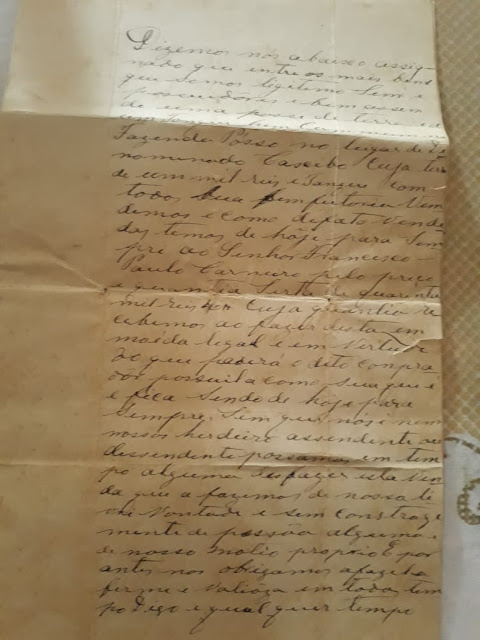 Dizemos nós abaixo assig
nado que entre os mais bens
que Somos legitimo Sem e
possuidores e bem assim
de uma posse de terra
em Commum
Fazenda Posso no lugar de
nominado Cacibo Cuja terra
de um mil reis e Tanzes Com
todos Sua bemfeitoria Vem
demos e como defato Vende
das temos de hoje para Sem
pre ao Senhor Francisco
Paulo Carneiro pelo preço
e quantia Serta de quarenta
mil reis 40 Cuja quantia re
cebemos ao fazer desta em
moéda legal e em Vertude
do que poderá o dito Compra
dor possuila como Sua que é
e fica Sendo de hoje para
Sempre, Sem que nós e nem
nossos herdeiro assendente ou
dessendente possamos em tem
po alguma desfazer esta Ven
da que a fazemos de nossa li
vri Vontade e sem Constrage
mento de pessõa alguma e
de nosso motio proprio E por
antes nos obrigamos afazela
ferme e Valioza em todos tem
po Digo e qual quer tempo